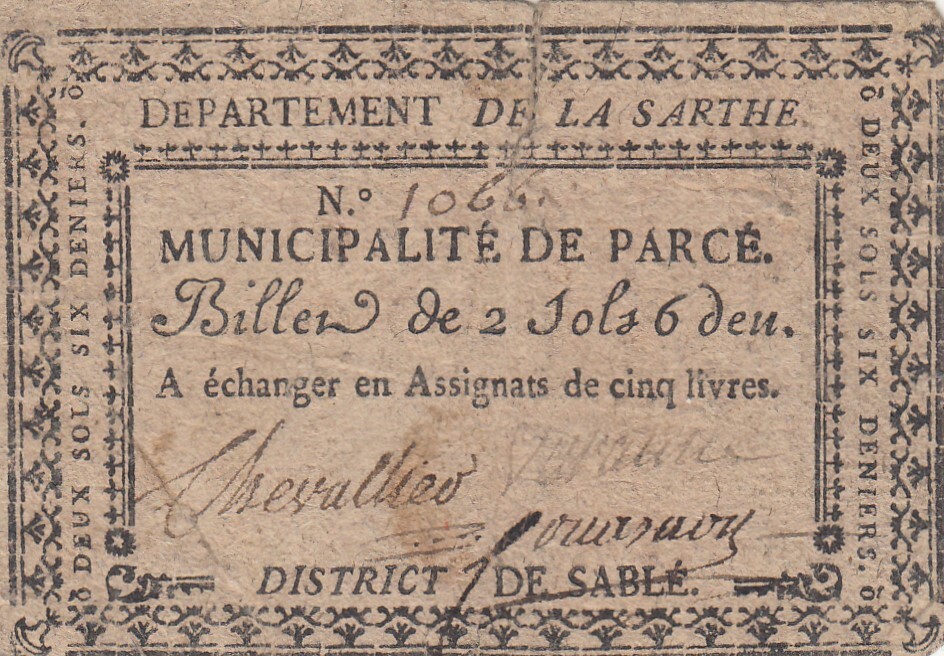 DEPARTEMENT DE LA SARTHE.
N.º 1066.
MUNICIPALITÉ DE PARCÉ.
Billet de 2 Sols 6 den.
A échanger en Assignats de cinq livres.
Chevallier
DISTRICT DE SABLÉ.
DEUX SOLS SIX DENIERS.
DEUX SOLS SIX DENIERS.